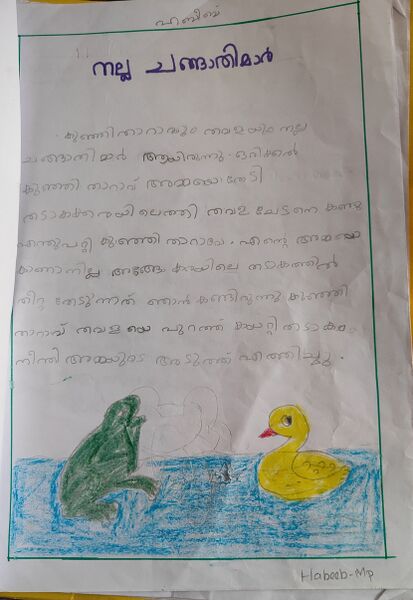 ഹബീബ്
നല്ല ചങ്ങാതിമാർ
കുഞ്ഞിതാറാവും തവളയും നല്ല
ചങ്ങാതിമാർ ആയിരുന്നു. ഒരിക്കൽ
കുഞ്ഞി താറാവ് അമ്മയെ തേടി
തടാകക്കരയിലെത്തി തവള ചേട്ടനെ കണ്ടു
എന്തുപറ്റി കുഞ്ഞി താറാവേ. എന്റെ അമ്മയെ
കാണാനില്ല അങ്ങേ കരയിലെ തടാകത്തിൽ
തീറ്റ തേടുന്നത് ഞാൻ കണ്ടിരുന്നു കുഞ്ഞി
താറാവ് തവളയെ പുറത്ത് കയറ്റി തടാകം
നീന്തി അമ്മയുടെ അടുത്ത് എത്തിച്ചു.
Habeeb-Mp